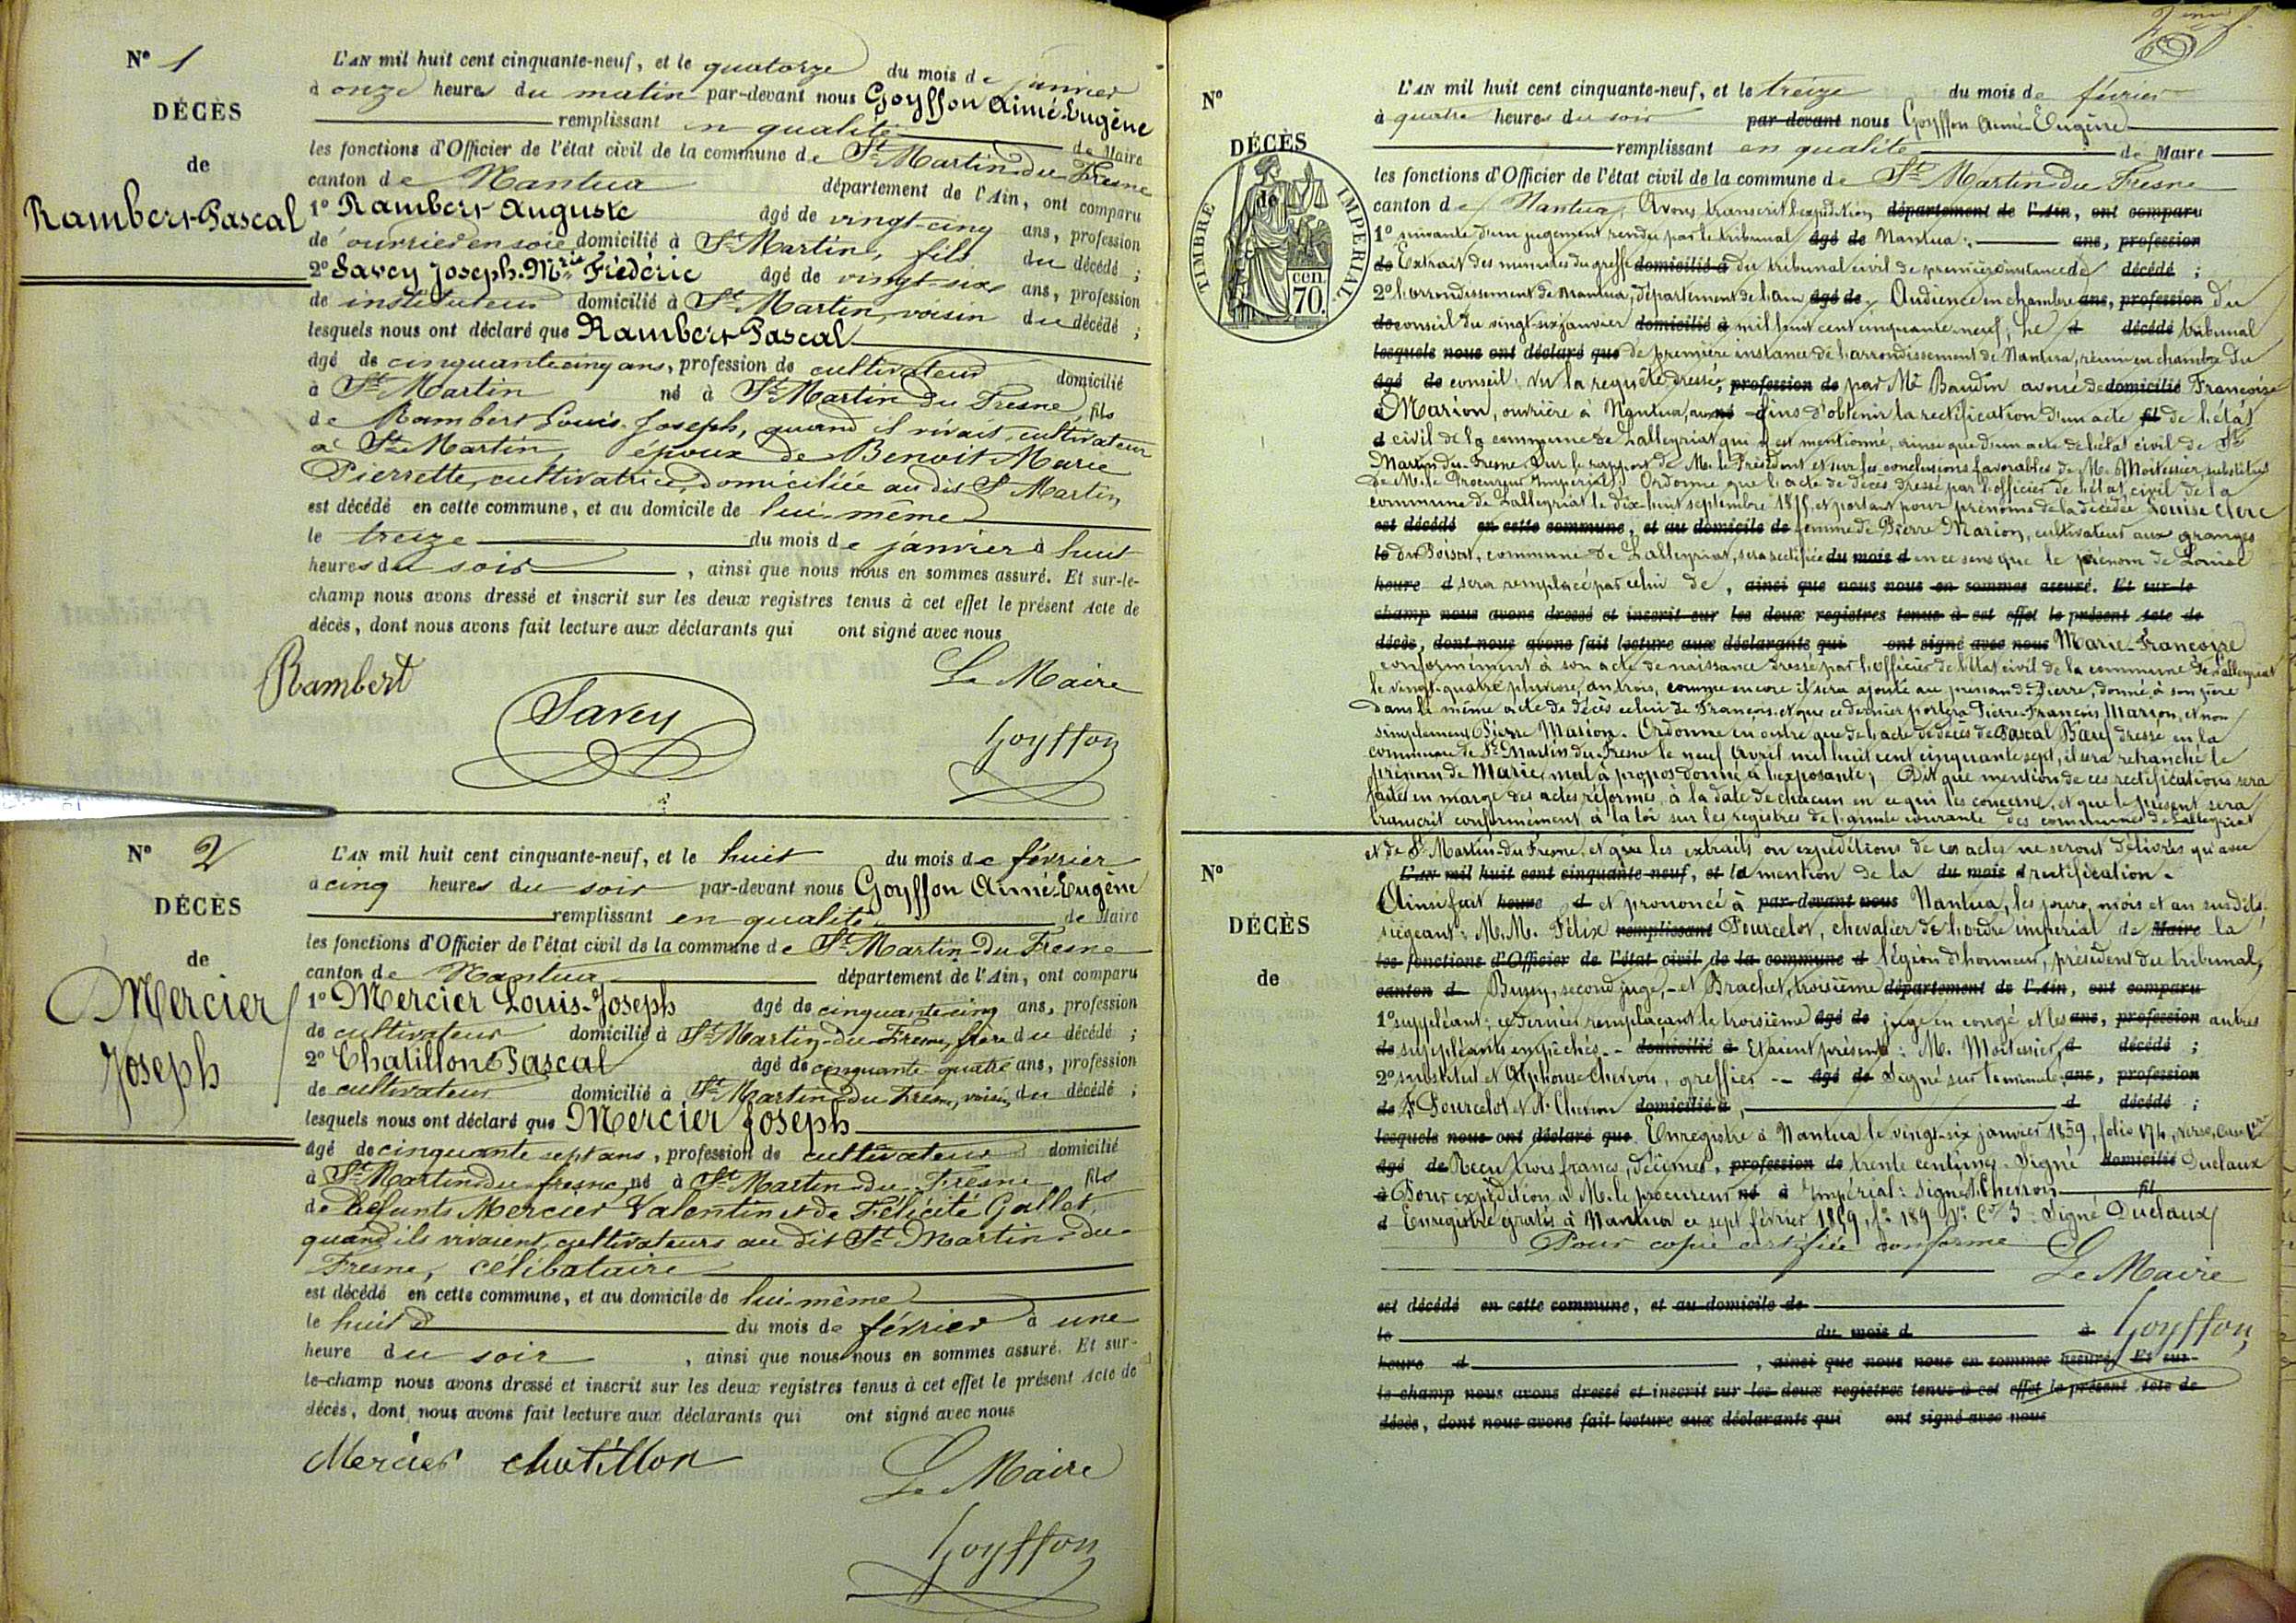 N° 1
DÉCÈS
de
Rambert Pascal
L'AN mil huit cent cinquante-neuf, et le quatorze du mois de janvier
à onze heures du matin par-devant nous Goyffon Aimé-Eugène
remplissant en qualité de Maire
les fonctions d'Officier de l'état civil de la commune de St Martin du Fresne
canton de Nantua département de l'Ain, ont comparu
1° Rambert Auguste âgé de vingt-cinq ans, profession
de ouvrier en soie domicilié à St Martin, fils du décédé ;
2° Savey Joseph-Mie Frédéric âgé de vingt-six ans, profession
de instituteur domicilié à St Martin, voisin du décédé ;
lesquels nous ont déclaré que Rambert Pascal
âgé de cinquante cinq ans, profession de cultivateur domicilié
à St Martin né à St Martin du Fresne, fils
de Rambert Louis-Joseph, quand il vivait, cultivateur
à St Martin, époux de Benoit Marie
Pierrette, cultivatrice, domiciliée au dit St Martin,
est décédé en cette commune, et au domicile de lui-même
le treize du mois de janvier à huit
heures du soir, ainsi que nous nous en sommes assuré. Et sur-le-
champ nous avons dressé et inscrit sur les deux registres tenus à cet effet le présent Acte de
décès, dont nous avons fait lecture aux déclarants qui ont signé avec nous
Rambert Savey Le Maire
Goyffon
N° 2
DÉCÈS
de
Mercier
Joseph
L'AN mil huit cent cinquante-neuf, et le huit du mois de février
à cinq heures du soir par-devant nous Goyffon Aimé-Eugène
remplissant en qualité de Maire
les fonctions d'Officier de l'état civil de la commune de St Martin du Fresne
canton de Nantua département de l'Ain, ont comparu
1° Mercier Louis-Joseph âgé de cinquante cinq ans, profession
de cultivateur domicilié à St Martin-du-Fresne, frère du décédé ;
2° Chatillon Pascal âgé de cinquante quatre ans, profession
de cultivateur domicilié à St Martin du Fresne, voisin du décédé ;
lesquels nous ont déclaré que Mercier Joseph
âgé de cinquante sept ans, profession de cultivateur domicilié
à St Martin du fresne, né à St Martin du Fresne, fils
de défunts Mercier Valentin et de Félicité Gallet,
quand ils vivaient, cultivateurs au dit St Martin-du-
Fresne, célibataire
est décédé en cette commune, et au domicile de lui-même
le huit du mois de février à une
heure du soir, ainsi que nous nous en sommes assuré. Et sur-
le-champ nous avons dressé et inscrit sur les deux registres tenus à cet effet le présent Acte de
décès, dont nous avons fait lecture aux déclarants qui ont signé avec nous
Mercier chatillon Le Maire
Goyffon
N°
DÉCÈS
de
TIMBRE IMPERIAL
70 cen.
L'AN mil huit cent cinquante-neuf, et le treize du mois de février
à quatre heures du soir par-devant nous Goyffon Aimé-Eugène
remplissant en qualité de Maire
les fonctions d'Officier de l'état civil de la commune de St Martin du Fresne
canton de Nantua, Avons transcrit l'expédition département de l'Ain, ont comparu
1° suivante d'un jugement rendu par le tribunal âgé de Nantua : ans, profession
de Extrait des minutes du greffe domicilié à du tribunal civil de première instance de décédé ;
2° l'arrondissement de Nantua, département de l'ain, âgé de Audience en chambre ans, profession du
de conseil du vingt-six janvier domicilié à mil huit cent cinquante-neuf, Le d décédé tribunal
lesquels nous ont déclaré que de première instance de l'arrondissement de Nantua, réuni en chambre du
âgé de conseil, Vu la requête dressée, profession de par Me Baudin avoué de domicilié Françoise
à Marion, ouvrière à Nantua, aux né fins d'obtenir la rectification d'un acte fil de l'état
d civil de la commune de Lalleyriat qui y est mentionné, ainsi que d'un acte de l'état civil de St
Martin-du-Fresne. Sur le rapport de M. le Président et sur les conclusions favorables de M. Moitessier, substitut
de M. le Procureur Impérial, Ordonne que l'acte de décès dressé par l'officier de l'état civil de la
commune de Lalleyriat le dix-huit septembre et portant pour prénoms de la décédée Louise Clerc
est décédé en cette commune, et au domicile de femme de Pierre Marion, cultivateur aux granges
le du Poisat, commune de Lalleyriat, sera rectifié du mois d en ce sens que le prénom de Louise
heure d sera remplacé par celui de, ainsi que nous nous en sommes assuré. Et sur-le
champ nous avons dressé et inscrit sur les deux registres tenus à cet effet le présent Acte de
décès, dont nous avons fait lecture aux déclarants qui ont signé avec nous Marie-Françoise
conformément à son acte de naissance dressé par l'officier de l'état civil de la commune de Lalleyriat
le vingt-quatre pluviose, an trois, comme encore il sera ajouté au prénom de Pierre, donné à son père
dans le même acte de décès celui de François, et que ce dernier portera Pierre-François Marion, et non
simplement Pierre Marion. Ordonne en outre que de l'acte de décès de Pascal dressé en la
commune de St Martin du Fresne le neuf Avril mil huit cent cinquante sept, il sera retranché le
prénom de Marie, mal à propos donné à l'exposante ; Dit que mention de ces rectifications sera
faite en marge des actes réformés, à la date de chacun en ce qui les concerne, et que le présent sera
transcrit conformément à la loi sur les registres de l'année courante des communes de Lalleyriat
et de St Martin-du-Fresne, et que les extraits ou expéditions de ces actes ne seront délivrés qu'avec
N°
DÉCÈS
de
L'AN mil huit cent cinquante-neuf, et la mention de la du mois d rectification.
Ainsi fait heure d et prononcé à par-devant nous Nantua, les jours, mois et an susdits.
siégeant : M.M. Félix remplissant Pourcelot, chevalier de l'ordre impérial de Maire la
les fonctions d'Officier de l'état civil de la commune d légion d'honneur, président du tribunal,
canton d second juge, et Brachet, troisième département de l'Ain, ont comparu
1° suppléant ; ce dernier remplaçant le troisième âgé de juge en congé et les ans, profession autres
de suppléants empêchés -- domicilié à Etaient présents : M. Moitessier, d décédé ;
2° substitut et Alphonse Chevron, greffier -- âgé de Signé sur la minute, ans, profession
de F. Pourcelot et A. Chevron domicilié à, d décédé ;
lesquels nous ont déclaré que Enregistré à Nantua le vingt-six janvier 1859, folio 174, verso, case 1ère
âgé de Reçu trois francs, décimes, profession de trente centimes. Signé domicilié Duclaux
à Pour expédition à M. le procureur né à Impérial : signé A. Chevron fil
d Enregistré gratis à Nantua ce sept février 1859, f° 189 Vo Ce 3 : Signé Duclaux
Pour copie certifiée conforme
Le Maire
est décédé en cette commune, et au domicile de
le du mois d à Goyffon
heure d, ainsi que nous nous en sommes assuré. Et sur-
le-champ nous avons dressé et inscrit sur les deux registres tenus à cet effet le présent Acte de
décès, dont nous avons fait lecture aux déclarants qui ont signé avec nous